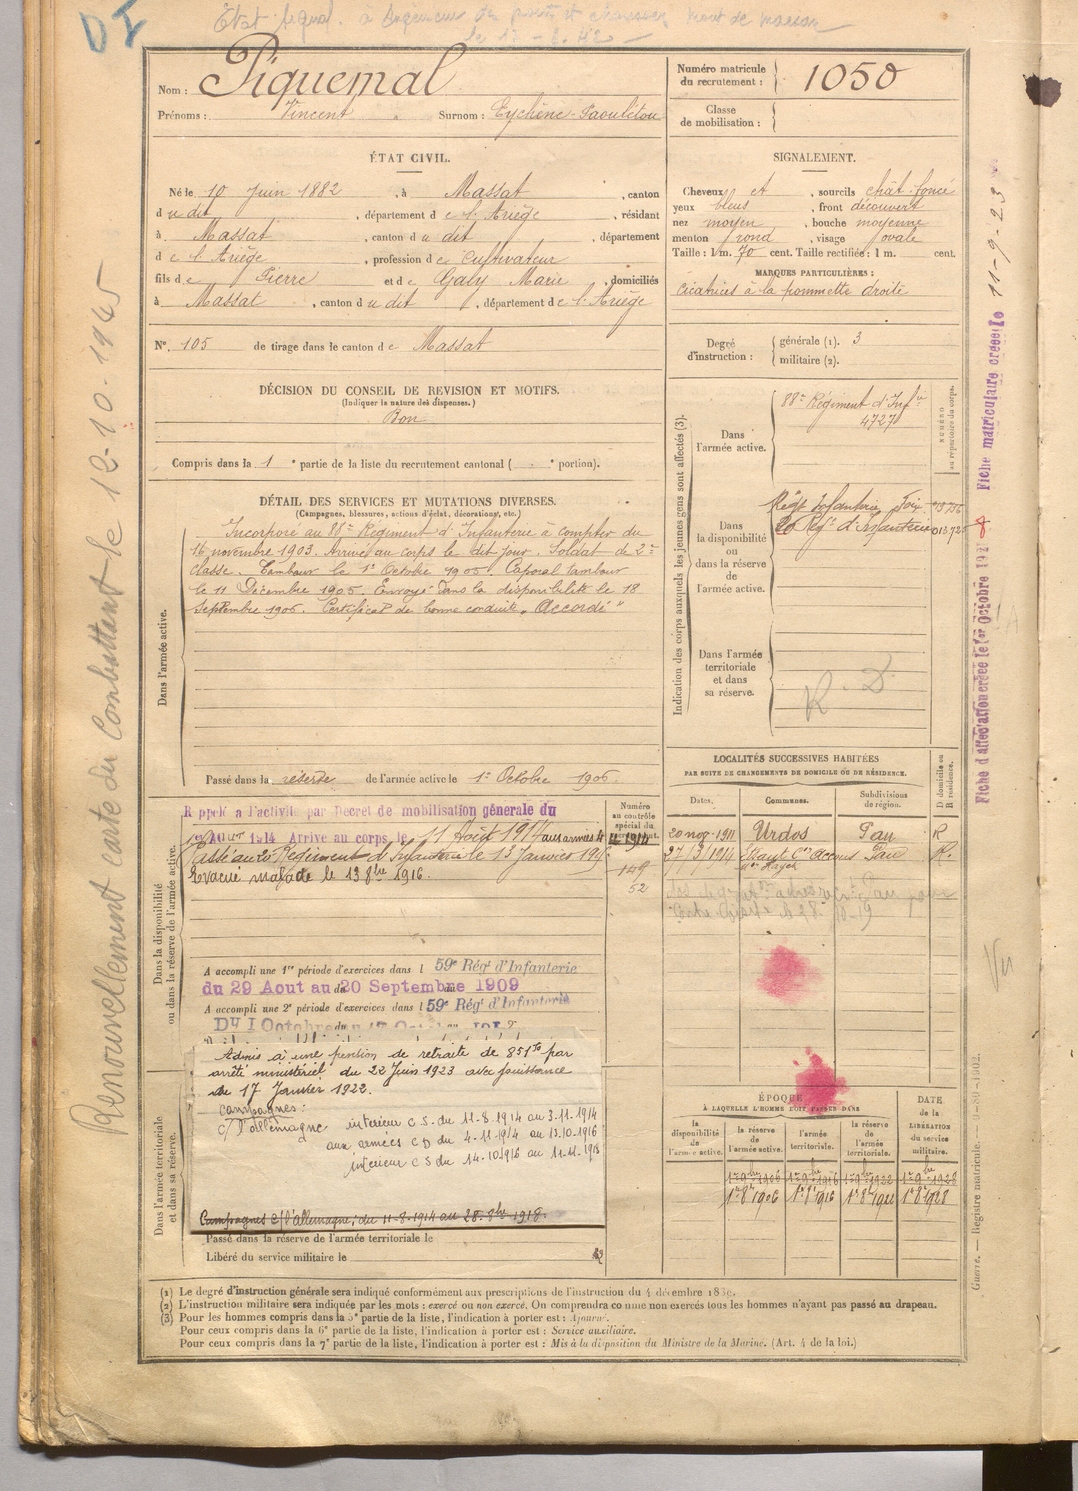 D I
Etat signal. a Ingenieur des ponts et chaussées mont de marsan
le 17 - 6. 42 -
Nom : Piquemal
Prénoms : Vincent Surnom : Eychène-Paoulétou
Numéro matricule du recrutement : 1050
Classe de mobilisation :
ÉTAT CIVIL.
Né le 10 Juin 1882 , à Massat , canton
d u dit , département d e l'Ariège , résidant
à Massat , canton d u dit , département
d e l'Ariège , profession d e Cultivateur
fils d e Pierre et d e Galy Marie , domiciliés
à Massat , canton d u dit , département d e l'Ariège
SIGNALEMENT.
Cheveux et , sourcils chât. foncé
yeux bleus , front découvert
nez moyen , bouche moyenne
menton rond , visage ovale
Taille : 1 m. 70 cent. Taille rectifiée : 1 m. cent.
MARQUES PARTICULIÈRES :
Cicatrices à la pommette droite
N°. 105 de tirage dans le canton d e Massat
Degré d'instruction : générale (1). 3
militaire (2).
DÉCISION DU CONSEIL DE REVISION ET MOTIFS.
(Indiquer la nature des dispenses.)
Bon
Compris dans la 1e partie de la liste du recrutement cantonal ( portion).
DÉTAIL DES SERVICES ET MUTATIONS DIVERSES.
(Campagnes, blessures, actions d'éclat, décorations, etc.)
Dans l'armée active.
Incorporé au 88e Régiment d'Infanterie à compter du
16 novembre 1903. Arrivé au corps le dit jour. Soldat de 2e
classe. Tambour le 1er Octobre 1905. Caporal tambour
le 11 Décembre 1905. Envoyé dans la disponibilité le 18
Septembre 1906. Certificat de bonne conduite "Accordé"
Passé dans la réserve de l'armée active le 1er Octobre 1906.
Indication des corps auxquels les jeunes gens sont affectés (3).
NUMÉRO
au répertoire du corps.
Dans
l'armée active.
88e Régiment d'Infie
4727
Dans
la disponibilité
ou
dans la réserve
de l'armée active.
Régt Infanterie Foix
20 Rgt d'Infanterie 013725
Dans l'armée
territoriale
et dans
sa réserve.
R. D.
LOCALITÉS SUCCESSIVES HABITÉES
PAR SUITE DE CHANGEMENTS DE DOMICILE OU DE RÉSIDENCE.
Dates. Communes. Subdivisions de région. D domicile ou R résidence.
20 nov. 1911 Urdos Pau R
27/3/1914 Pau R.
Dans la disponibilité
ou dans la réserve de l'armée active.
Rappelé a l'activité par Decret de mobilisation générale du
1er Aout 1914 Arrive au corps le 11 Août 1914 aux armées 4
Passé au 20 Régiment d'Infanterie le 13 Janvier 191
Evacué malade le 13 8bre 1916.
Numéro
au contrôle
spécial du
149
52
A accompli une 1re période d'exercices dans l 59e Régt d'Infanterie
du 29 Aout au 20 Septembre 1909
A accompli une 2e période d'exercices dans l 59e Régt d'Infanterie
Admis à une pension de retraite de 851f par
arrêté ministériel du 22 Juin 1923 avec jouissance
du 17 Janvier 1922.
Campagnes :
c/ l'allemagne intérieur C S. du 11-8-1914 au 3-11-1914
aux armées C D du 4-11-1914 au 13-10-1916
intérieur C S du 14-10-1916 au 11-11-1918
Campagnes c/ l'allemagne, du 11-8-1914 au 28-8bre 1918.
Dans l'armée territoriale
et dans sa réserve.
Passé dans la réserve de l'armée territoriale le
Libéré du service militaire le
ÉPOQUE
À LAQUELLE L'HOMME DOIT PASSER DANS
la disponibilité de l'armée active. la réserve de l'armée active. l'armée territoriale. la réserve de l'armée territoriale.
DATE de la LIBÉRATION du service militaire.
1er 9bre 1906 1er 9bre 1916 1er 9bre 1922 1er 9bre 1928
1er 8bre 1906 1er 8bre 1916 1er 8bre 1922 1er 8bre 1928
(1) Le degré d'instruction générale sera indiqué conformément aux prescriptions de l'instruction du 4 décembre 1889.
(2) L'instruction militaire sera indiquée par les mots : exercé ou non exercé. On comprendra comme non exercés tous les hommes n'ayant pas passé au drapeau.
(3) Pour les hommes compris dans la 5e partie de la liste, l'indication à porter est : Ajourné.
Pour ceux compris dans la 6e partie de la liste, l'indication à porter est : Service auxiliaire.
Pour ceux compris dans la 7e partie de la liste, l'indication à porter est : Mis à la disposition du Ministre de la Marine. (Art. 4 de la loi.)
Renouvellement carte du Combattant le 12-10-1945
Fiche matriculaire créée le 11-9-23
Fiche d'affectation créée le 1er Octobre 192
Guerre. — Registre matricule. — 9-80-1902.
Vu